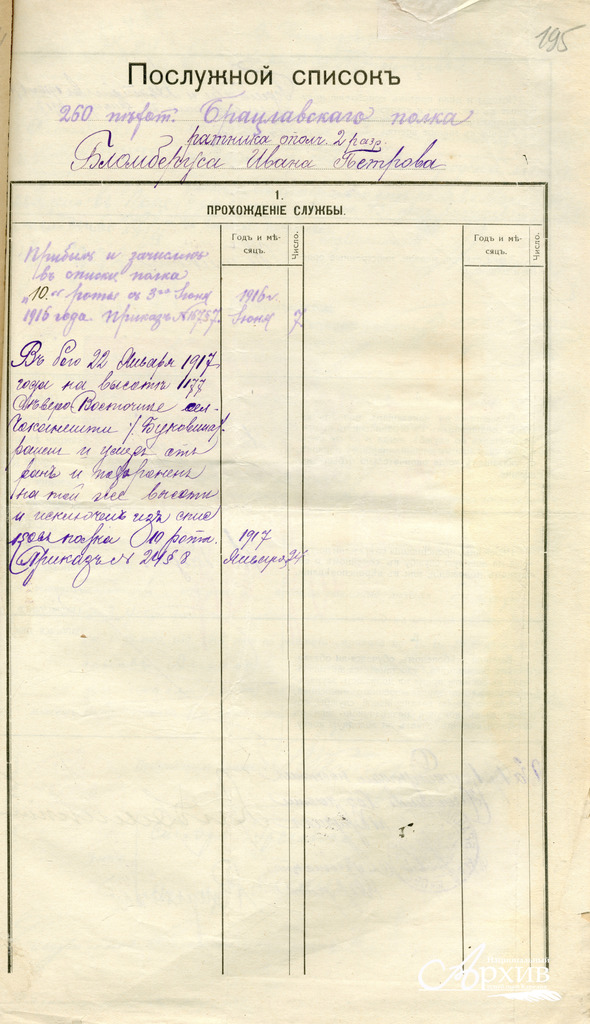 195
Послужной списокъ
260 пѣхот. Брацлавскаго полка
ратника опол. 2 разр.
Бломберуса Ивана Петрова
1.
ПРОХОЖДЕНІЕ СЛУЖБЫ.
Годъ и мѣ-
сяцъ.
Число.
Годъ и мѣ-
сяцъ.
Число.
Прибылъ и зачисленъ
въ списки полка
"10." роты съ 3го Іюня 1916 г.
1916 года. Приказъ № Іюня 7
Въ бою 22 Января 1917
года на высотѣ 1177
Сѣверо Восточнѣе сел.
(Буковина)
раненъ и умеръ отъ
ранъ и похороненъ
на той же высотѣ
и исключенъ изъ спис
полка 10 роты. 1917
(Приказъ № Января 24
Архив